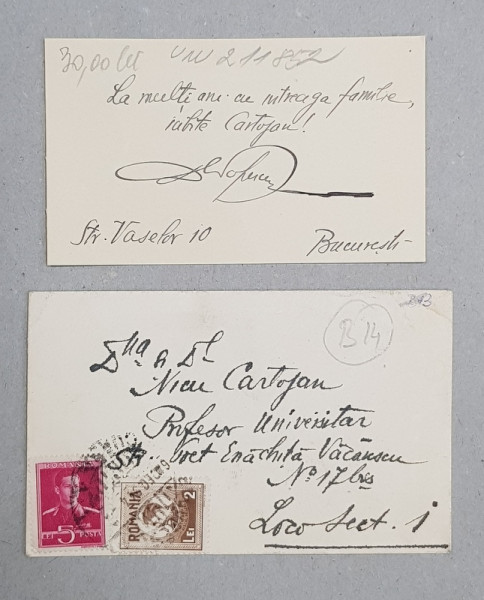 30,00 lei
211852
La mulți ani cu întreaga familie,
iubite Cartojan!
Str. Vaselor 10
București
B 14
Dna & Dl
Nicu Cartojan
Profesor Universitar
Enachita Văcărescu
No 17 bis
Loco Sect. 1
LEI 5
ROMANIA
LEI 2